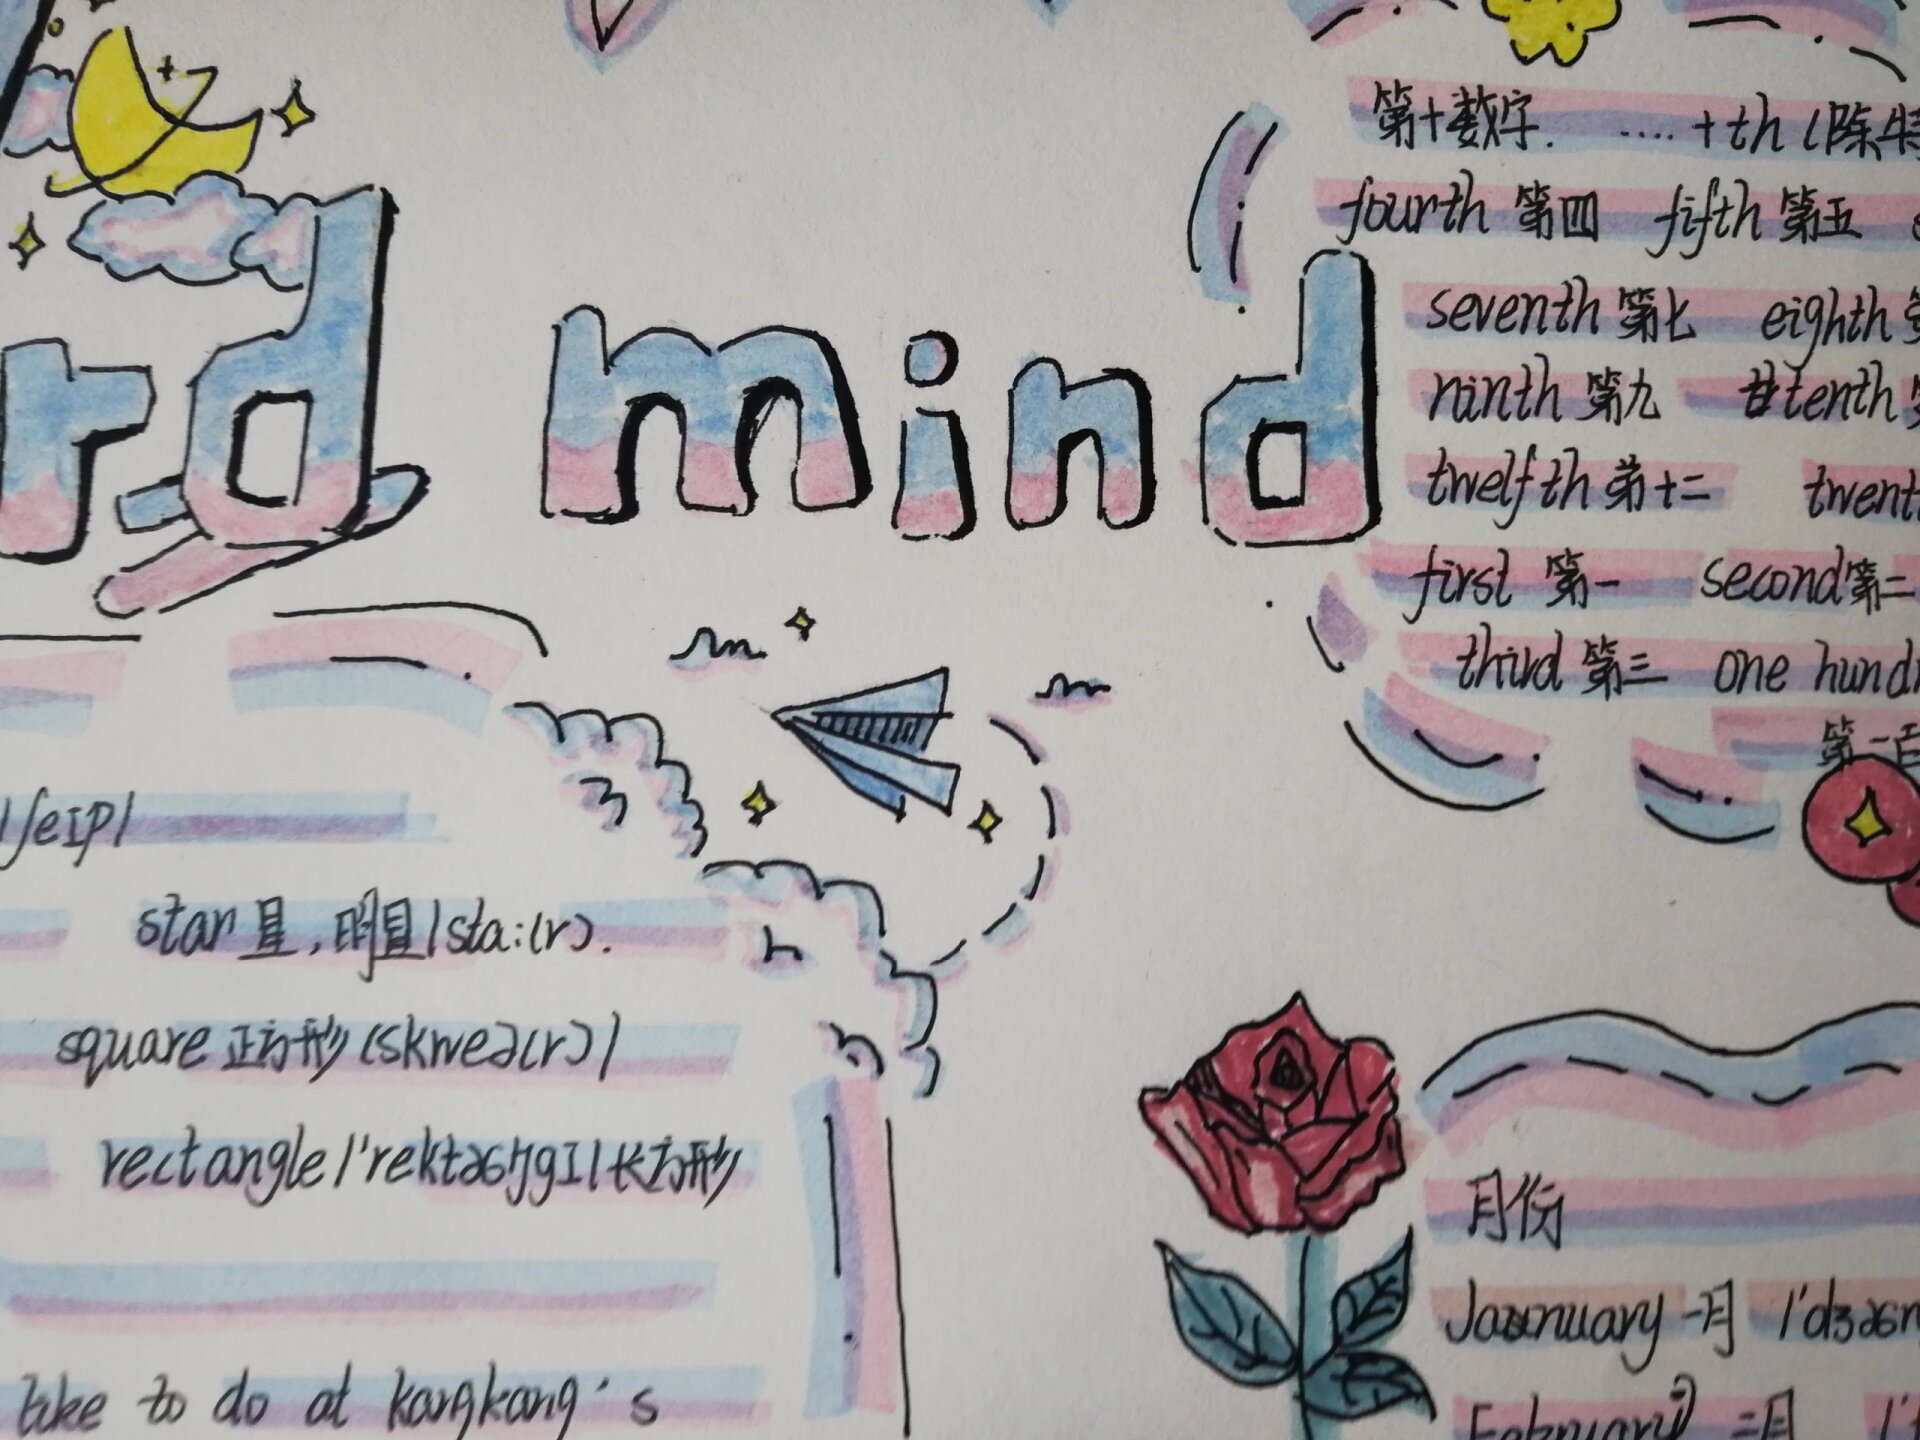 rd mind
第十数字. ....+th (除特
fourth 第四 fifth 第五
seventh 第七 eighth
ninth 第九 tenth
twelfth 第十二 twent
first 第一 second 第二
third 第三 one hund
第一百
/ʃeɪp/
star 星,明星/sta:(r).
square 正方形 (skweə(r)/
rectangle /'rektæŋgɪl 长方形
like to do at kangkang's
月份
January 一月 /'dʒæn
February 二月